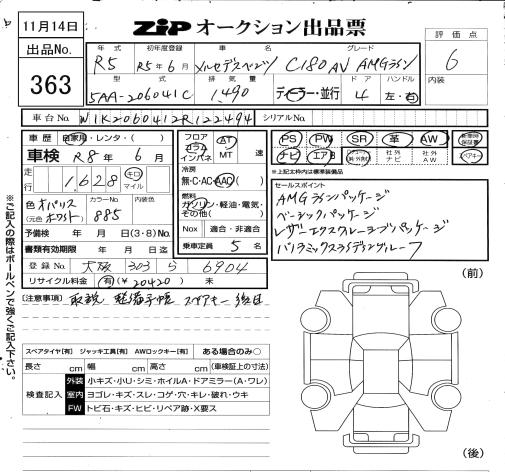 11月14日
ZIP オークション出品票
評価点
6
内装
出品No.
363
年式 初年度登録 車名 グレード
R5 R5年6月 メルセデスベンツ C180 AV AMGライン
型式 排気量 ドア ハンドル
5AA-206041C 1,490 ディーラー・並行 4 左・右
車台No. W1K2060412R122494 シリアルNo.
車歴 自家用・レンタ・( )
車検 R8年 6月
走行 1,628 キロ マイル
色 オパリスホワイト (元色 ) カラーNo. 885 内装色
予備検 年 月 日(3・8)No.
書類有効期限 年 月 日迄
登録No. 大阪 303 ら 6904
リサイクル料金 有(¥20420) 未
フロア コラム インパネ AT MT 速
冷房 無・C・AC・AAC
燃料 ガソリン・軽油・電気・その他( )
Nox 適合・非適合
乗車定員 5 名
PS PW SR 革 AW 新車時保証書
ナビ エアB 社外ナビ 社外AW
※上記記載○は標準装備品
セールスポイント
AMGラインパッケージ
ベーシックパッケージ
レザーエクスクルーシブパッケージ
パノラミックスライディングルーフ
[注意事項] 取説 整備手帳 スペアキー 後日
(前)
(後)
スペアタイヤ[有] ジャッキ工具[有] AWロックキー[有] ある場合のみ○
長さ cm 幅 cm 高さ cm (車検証上の寸法)
検査記入
外装 小キズ・小U・シミ・ホイルA・ドアミラー(A・ワレ)
室内 ヨゴレ・キズ・スレ・コゲ・穴・キレ・破れ・ウキ
FW トビ石・キズ・ヒビ・リペア跡・X要ス
※ご記入の際はボールペンで強くご記入下さい。